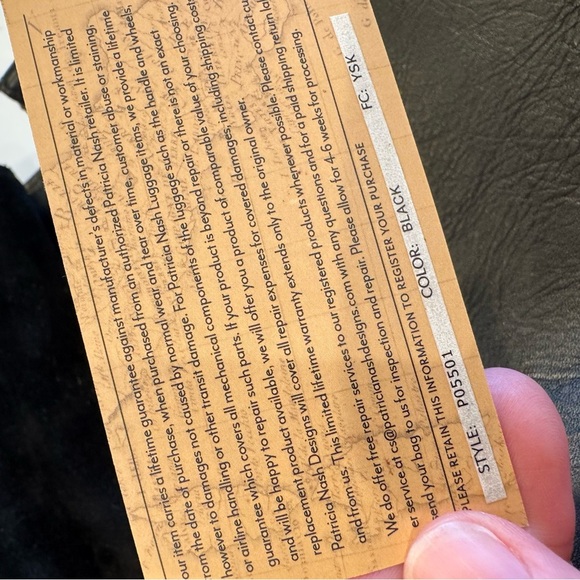 our item carries a lifetime guarantee against manufacturer's defects in material or workmanship
from the date of purchase, when purchased from an authorized Patricia Nash retailer. It is limited
however to damages not caused by normal wear and tear over time, customer abuse or staining,
or airline handling or other transit damage. For Patricia Nash Luggage items, we provide a lifetime
guarantee which covers all mechanical components of the luggage such as the handle and wheels,
and will be happy to repair such parts. If your product is beyond repair or there is not an exact
replacement product available, we will offer you a product of comparable value of your choosing.
Patricia Nash Designs will cover all repair expenses for covered damages, including shipping cost
and from us. This limited lifetime warranty extends only to the original owner.
We do offer free repair services to our registered products whenever possible. Please contact cu
er service at cs@patricianashdesigns.com with any questions and for a paid shipping return la
end your bag to us for inspection and repair. Please allow for 4-6 weeks for processing.
PLEASE RETAIN THIS INFORMATION TO REGISTER YOUR PURCHASE
STYLE: P055501 COLOR: BLACK FC: YSK